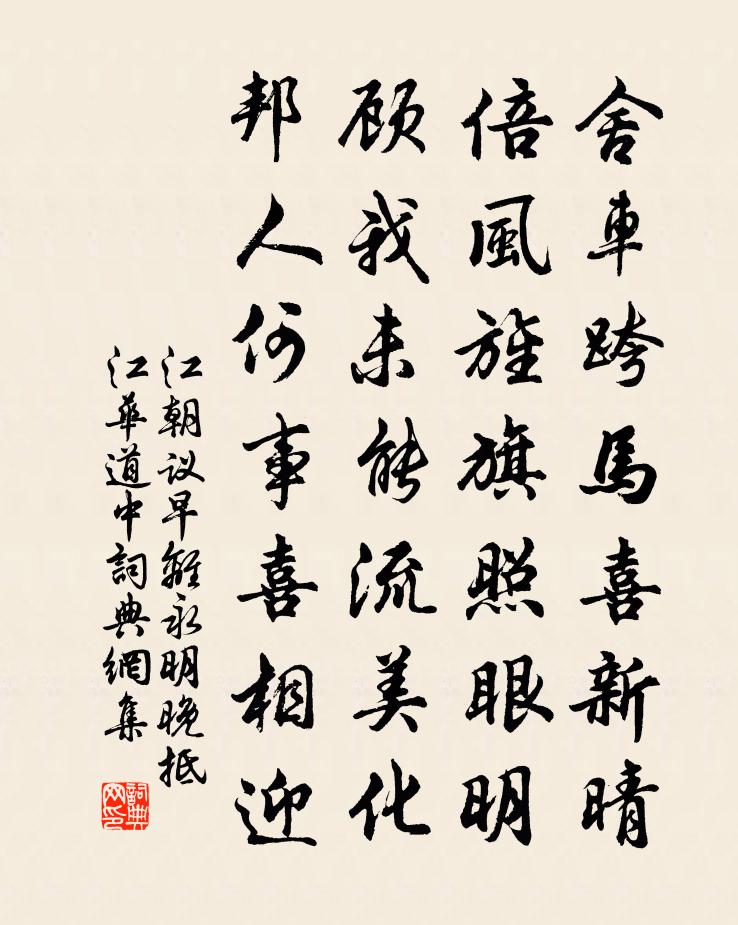 舍車跨馬喜新晴
倍風旌旗照眼明
顾我未能流美化
邦人何事喜相迎
江朝议早離永明晚抵
江華道中詞典網集
詞典网印